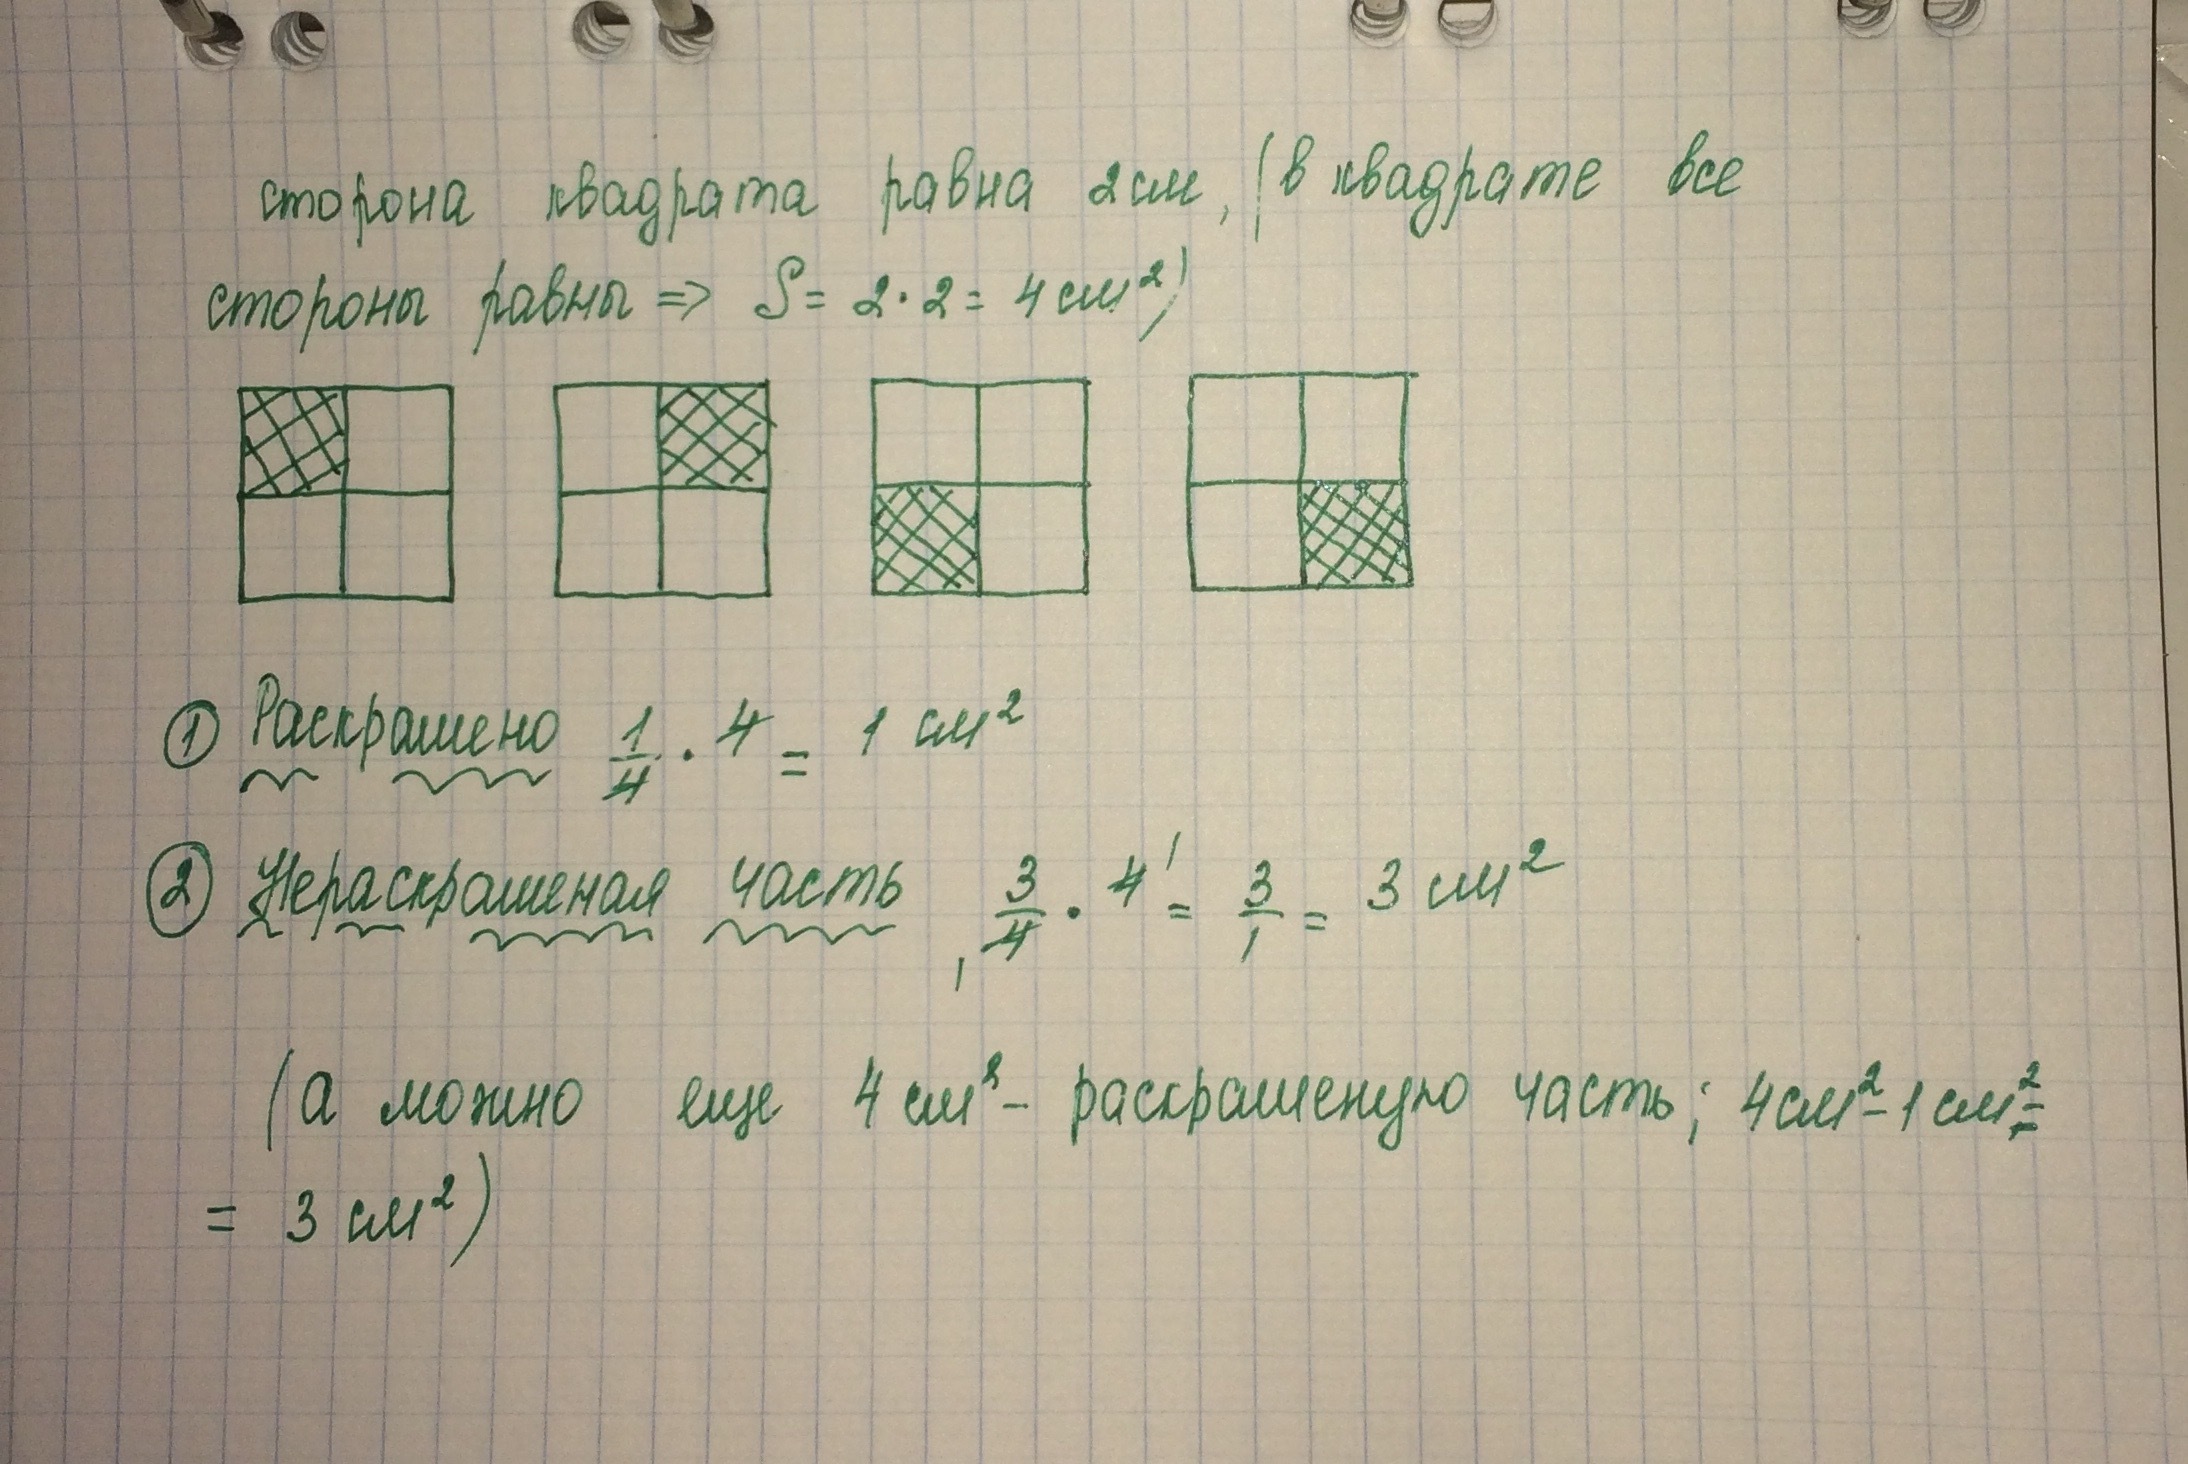 сторона квадрата равна 2см, (в квадрате все
стороны равны => S = 2 · 2 = 4 см²)
① Раскрашено 1/4 · 4 = 1 см²
② Нераскрашеная часть 3/4 · 4 = 3/1 = 3 см²
(а можно еще 4 см² - раскрашеную часть; 4см² - 1 см² =
= 3 см²)